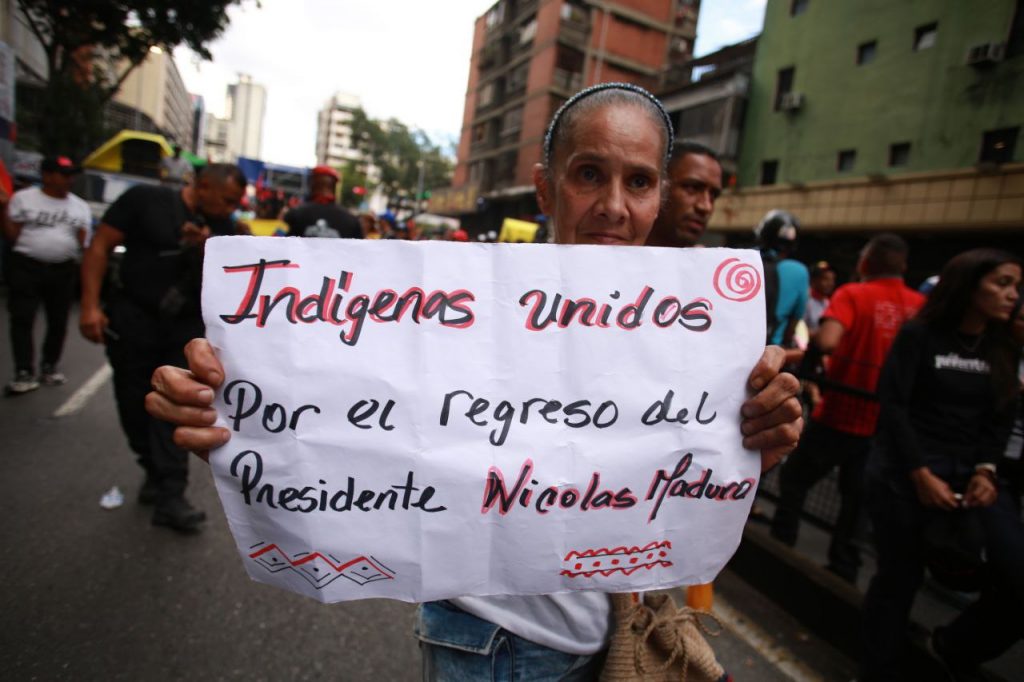 Indígenas unidos
Por el regreso del
Presidente Nicolas Maduro